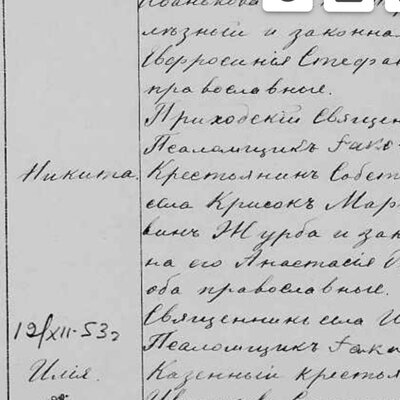 лѣзный и законна
Евфросинія Стефа
православные.
Приходскій Священ
Псаломщикъ Яко
Никита. Крестьянинъ Собст
села Крисокъ Мар
винъ Журба и зак
на его Анастасія
оба православные.
Священникъ села
12/XII-53г
Псаломщикъ Яко
Илія. Казенный крестья